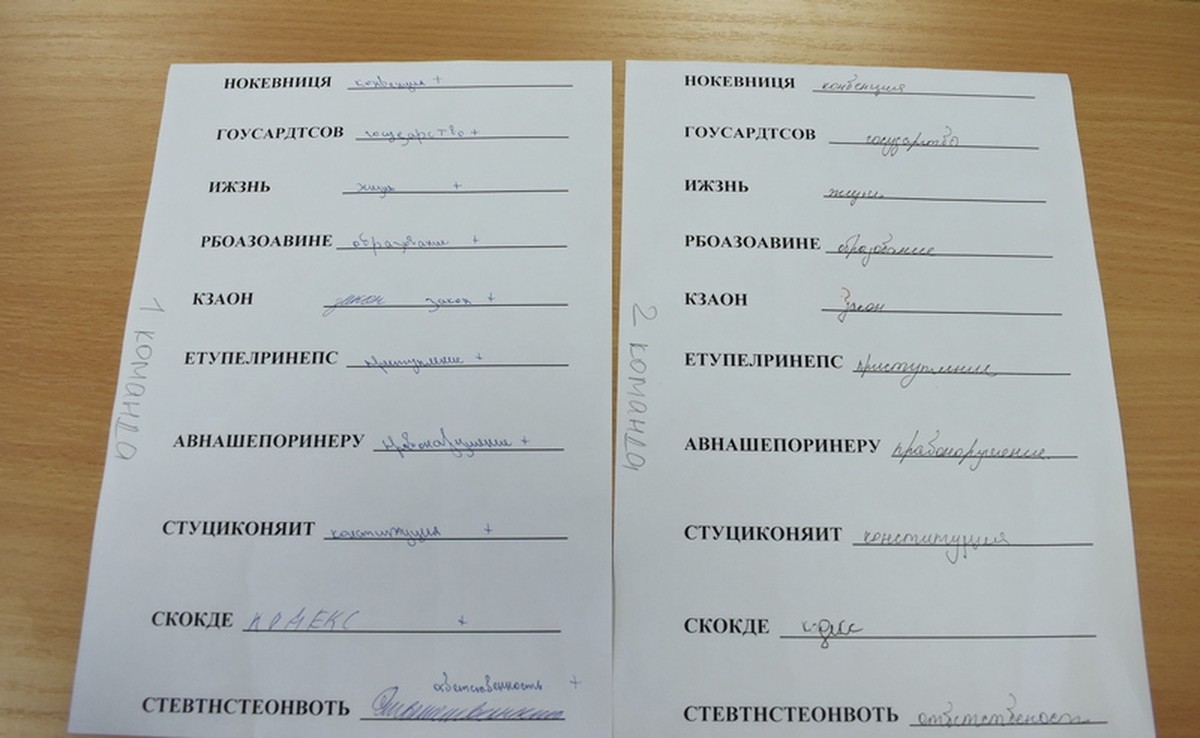 НОКЕВНИЦЯ конвенция +
ГОУСАРДТСОВ государство +
ИЖЗНЬ жизнь +
РБОАЗОАВИНЕ образование +
КЗАОН закон закон +
ЕТУПЕЛРИНЕПС преступление +
АВНАШЕПОРИНЕРУ правонарушение +
СТУЦИКОНЯИТ конституция +
СКОКДЕ КОДЕКС +
ответственность +
СТЕВТНСТЕОНВОТЬ
1 КОМАНДА
НОКЕВНИЦЯ конвенция
ГОУСАРДТСОВ государство
ИЖЗНЬ жизнь
РБОАЗОАВИНЕ образование
КЗАОН Закон
ЕТУПЕЛРИНЕПС приступление
АВНАШЕПОРИНЕРУ правонарушение
СТУЦИКОНЯИТ конституция
СКОКДЕ
СТЕВТНСТЕОНВОТЬ ответственость
2 КОМАНДА